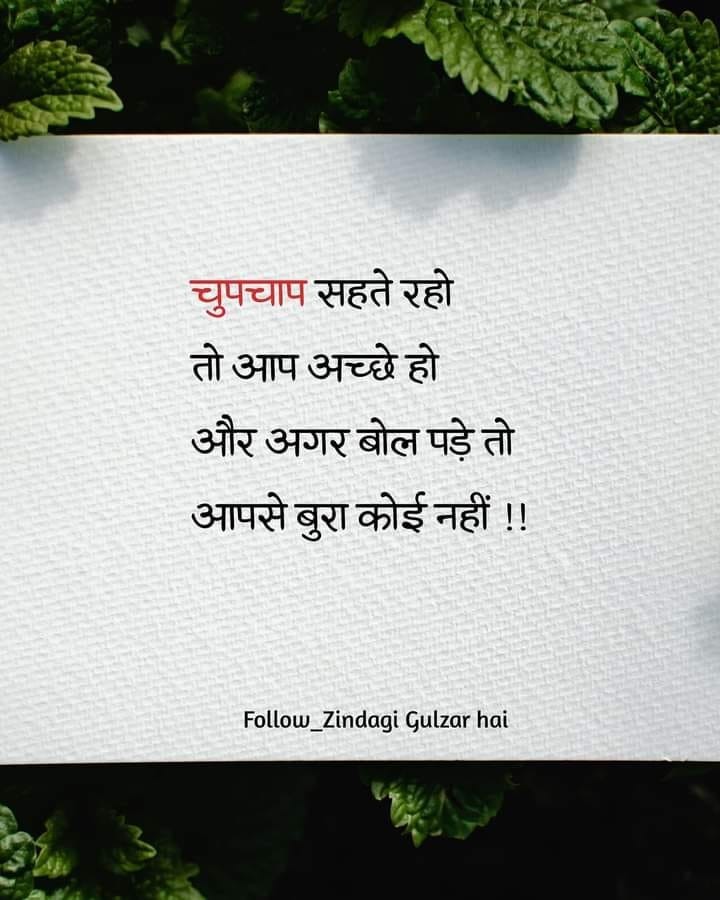 चुपचाप सहते रहो
तो आप अच्छे हो
और अगर बोल पड़े तो
आपसे बुरा कोई नहीं !!
Follow_Zindagi Gulzar hai